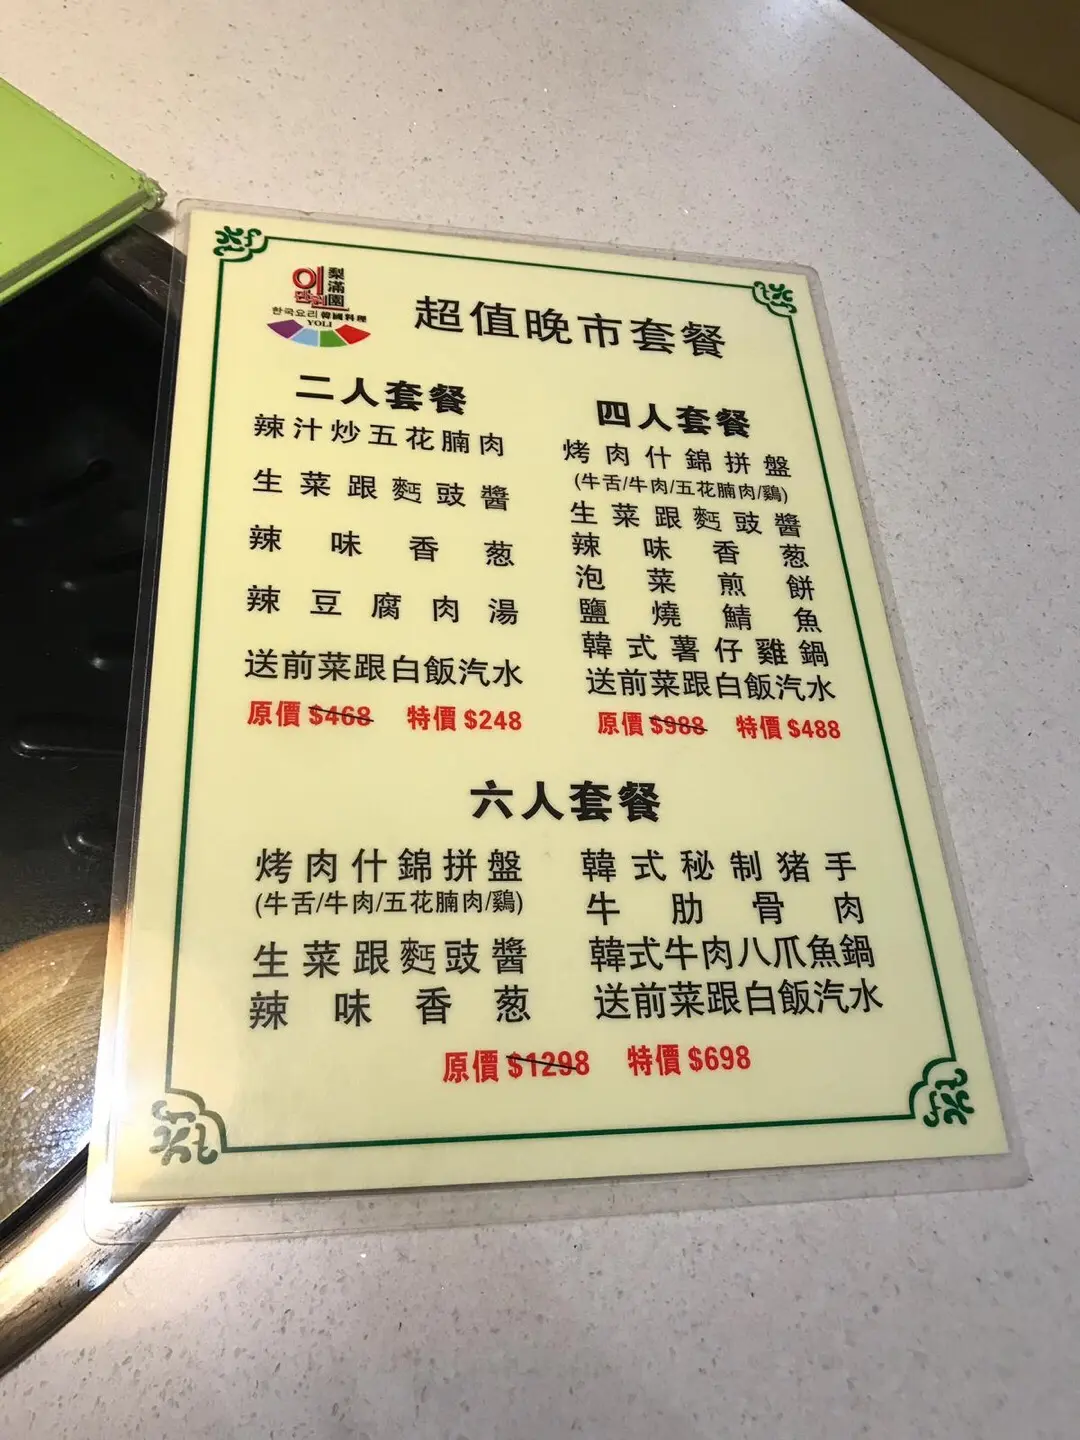 이
梨滿園
만원
한국요리韓國料理
YOLI
超值晚市套餐
二人套餐
辣汁炒五花腩肉
生菜跟麫豉醬
辣味香葱
辣豆腐肉湯
送前菜跟白飯汽水
原價 $468 特價 $248
四人套餐
烤肉什錦拼盤
(牛舌/牛肉/五花腩肉/鷄)
生菜跟麫豉醬
辣味香葱
泡菜煎餅
鹽燒鯖魚
韓式薯仔雞鍋
送前菜跟白飯汽水
原價 $988 特價 $488
六人套餐
烤肉什錦拼盤
(牛舌/牛肉/五花腩肉/鷄)
生菜跟麫豉醬
辣味香葱
韓式秘制猪手
牛肋骨肉
韓式牛肉八爪魚鍋
送前菜跟白飯汽水
原價 $1298 特價 $698